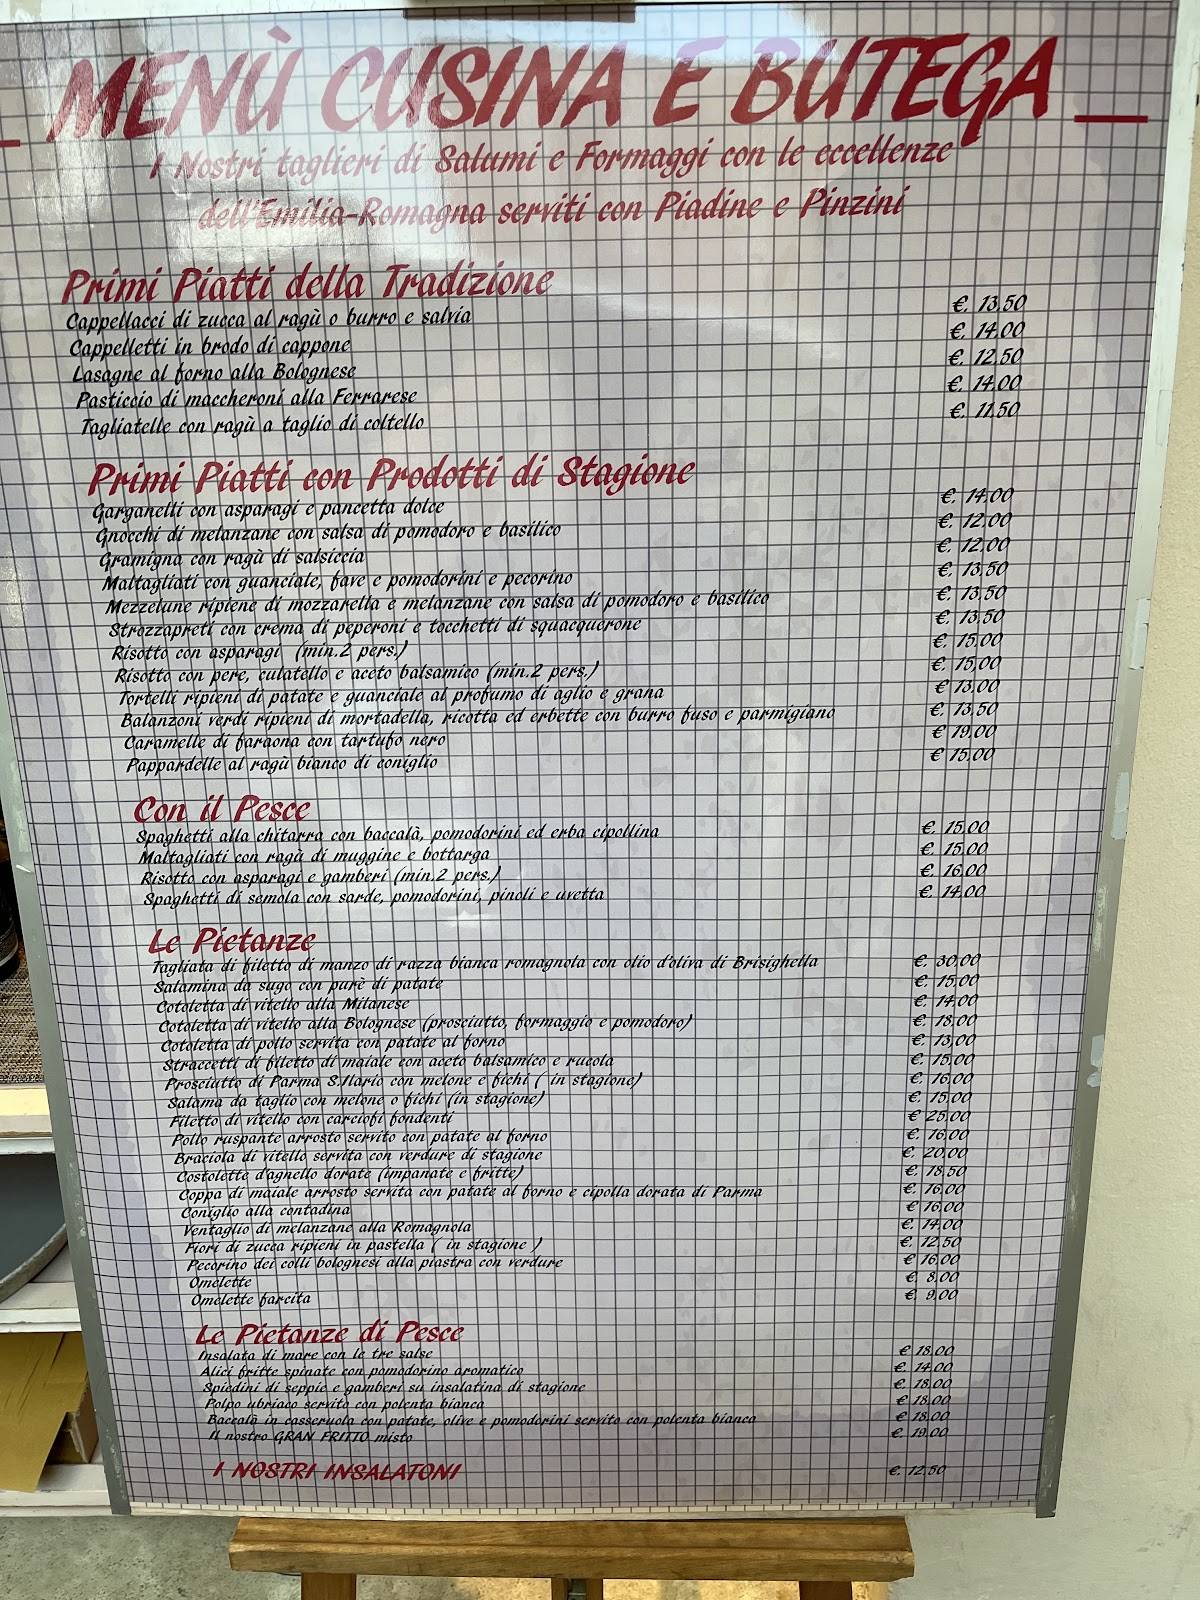 MENÙ CUSINA E BUTEGA
I Nostri taglieri di Salumi e Formaggi con le eccellenze
dell'Emilia-Romagna serviti con Piadine e Pinzini
Primi Piatti della Tradizione
Cappellacci di zucca al ragù o burro e salvia €. 13,50
Cappelletti in brodo di cappone €. 14,00
Lasagne al forno alla Bolognese €. 12,50
Pasticcio di maccheroni alla Ferrarese €. 14,00
Tagliatelle con ragù a taglio di coltello €. 11,50
Primi Piatti con Prodotti di Stagione
Garganelli con asparagi e pancetta dolce €. 14,00
Gnocchi di melanzane con salsa di pomodoro e basilico €. 12,00
Gramigna con ragù di salsiccia €. 12,00
Maltagliati con guanciale, fave e pomodorini e pecorino €. 13,50
Mezzelune ripiene di mozzarella e melanzane con salsa di pomodoro e basilico €. 13,50
Strozzapreti con crema di peperoni e tocchetti di squacquerone €. 13,50
Risotto con asparagi (min.2 pers.) €. 15,00
Risotto con pere, culatello e aceto balsamico (min.2 pers.) €. 15,00
Tortelli ripieni di patate e guanciale al profumo di aglio e grana € 13,00
Balanzoni verdi ripieni di mortadella, ricotta ed erbette con burro fuso e parmigiano €. 13,50
Caramelle di faraona con tartufo nero € 19,00
Pappardelle al ragù bianco di coniglio € 15,00
Con il Pesce
Spaghetti alla chitarra con baccalà, pomodorini ed erba cipollina €. 15,00
Maltagliati con ragù di muggine e bottarga €. 15,00
Risotto con asparagi e gamberi (min.2 pers.) €. 16,00
Spaghetti di semola con sarde, pomodorini, pinoli e uvetta €. 14,00
Le Pietanze
Tagliata di filetto di manzo di razza bianca romagnola con olio d'oliva di Brisighella €. 30,00
Salamina da sugo con purè di patate €. 15,00
Cotoletta di vitello alla Milanese €. 14,00
Cotoletta di vitello alla Bolognese (prosciutto, formaggio e pomodoro) €. 18,00
Cotoletta di pollo servita con patate al forno €. 13,00
Straccetti di filetto di maiale con aceto balsamico e rucola €. 15,00
Prosciutto di Parma S.Ilario con melone e fichi ( in stagione) €. 16,00
Salama da taglio con melone o fichi (in stagione) €. 15,00
Filetto di vitello con carciofi fondenti € 25,00
Pollo ruspante arrosto servito con patate al forno €. 16,00
Braciola di vitello servita con verdure di stagione €. 20,00
Costolette d'agnello dorate (impanate e fritte) €. 18,50
Coppa di maiale arrosto servita con patate al forno e cipolla dorata di Parma €. 16,00
Coniglio alla contadina € 16,00
Ventaglio di melanzane alla Romagnola €. 14,00
Fiori di zucca ripieni in pastella ( in stagione ) €. 12,50
Pecorino dei colli bolognesi alla piastra con verdure € 16,00
Omelette €. 8,00
Omelette farcita €. 9,00
Le Pietanze di Pesce
Insalata di mare con le tre salse € 18,00
Alici fritte spinate con pomodorino aromatico €. 14,00
Spiedini di seppie e gamberi su insalatina di stagione €. 18,00
Polpo ubriaco servito con polenta bianca € 18,00
Baccalà in casseruola con patate, olive e pomodorini servito con polenta bianca € 18,00
Il nostro GRAN FRITTO misto €. 19,00
I NOSTRI INSALATONI €. 12,50